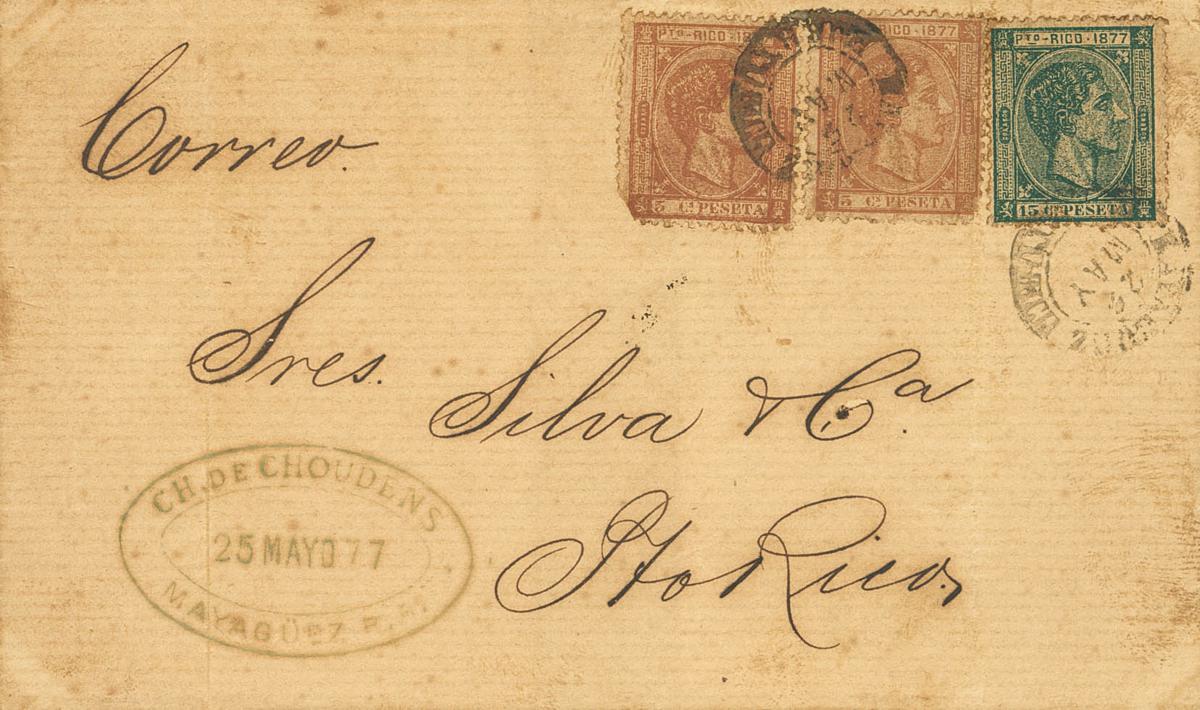 Pto-RICO-18
5 Cs PESETA
RICO-1877
5 Cs PESETA
Pto-RICO-1877
15 Cs PESETA
MAY
MAY
Correo.
Sres.
Silva & Ca.
Pto Rico.
CH. DE CHOUDENS
25 MAYO 77
MAYAGÜEZ P.